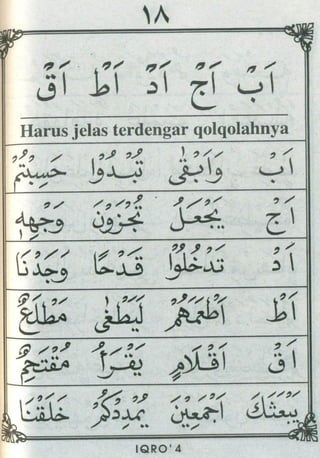 ١٨
اَبْ اَجْ اَدْ اَطْ اَقْ
Harus jelas terdengar qolqolahnya
اَبْ وَاَبْقٰى تُبْدُوْا حَسِبْتُمْ
اَجْ يَجْعَلُ تُجْزَوْنَ وَجْهِهٖ
اَدْ تَدْخُلُوْا قَدْحًا وَجَدْنَا
اَطْ اَطْعَمَهُمْ لَيَطْغٰى مَطْلَعِ
اَقْ اَقْلَامٍ يَقْرَأُ مُقْتَحِمٌ
يَبْعَثَكَ اَجْمَعِيْنَ يُمْدِدْكُمْ خَلَقْنَا
IQRO' 4